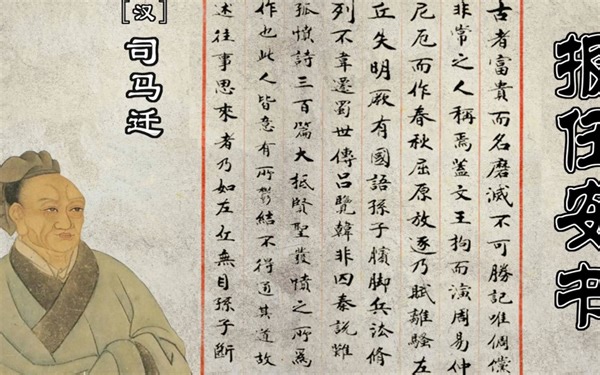 报任安书
古者富貴而名磨滅不可勝記唯倜儻
非常之人稱焉蓋文王拘而演周易仲
尼厄而作春秋屈原放逐乃賦離騷左
丘失明厥有國語孫子臏脚兵法脩
列不韋遷蜀世傳呂覽韓非囚秦說難
孤憤詩三百篇大抵賢聖發憤之所為
作也此人皆意有所鬱結不得通其道故
述往事思來者乃如左丘無目孫子斷
[汉]
司马迁